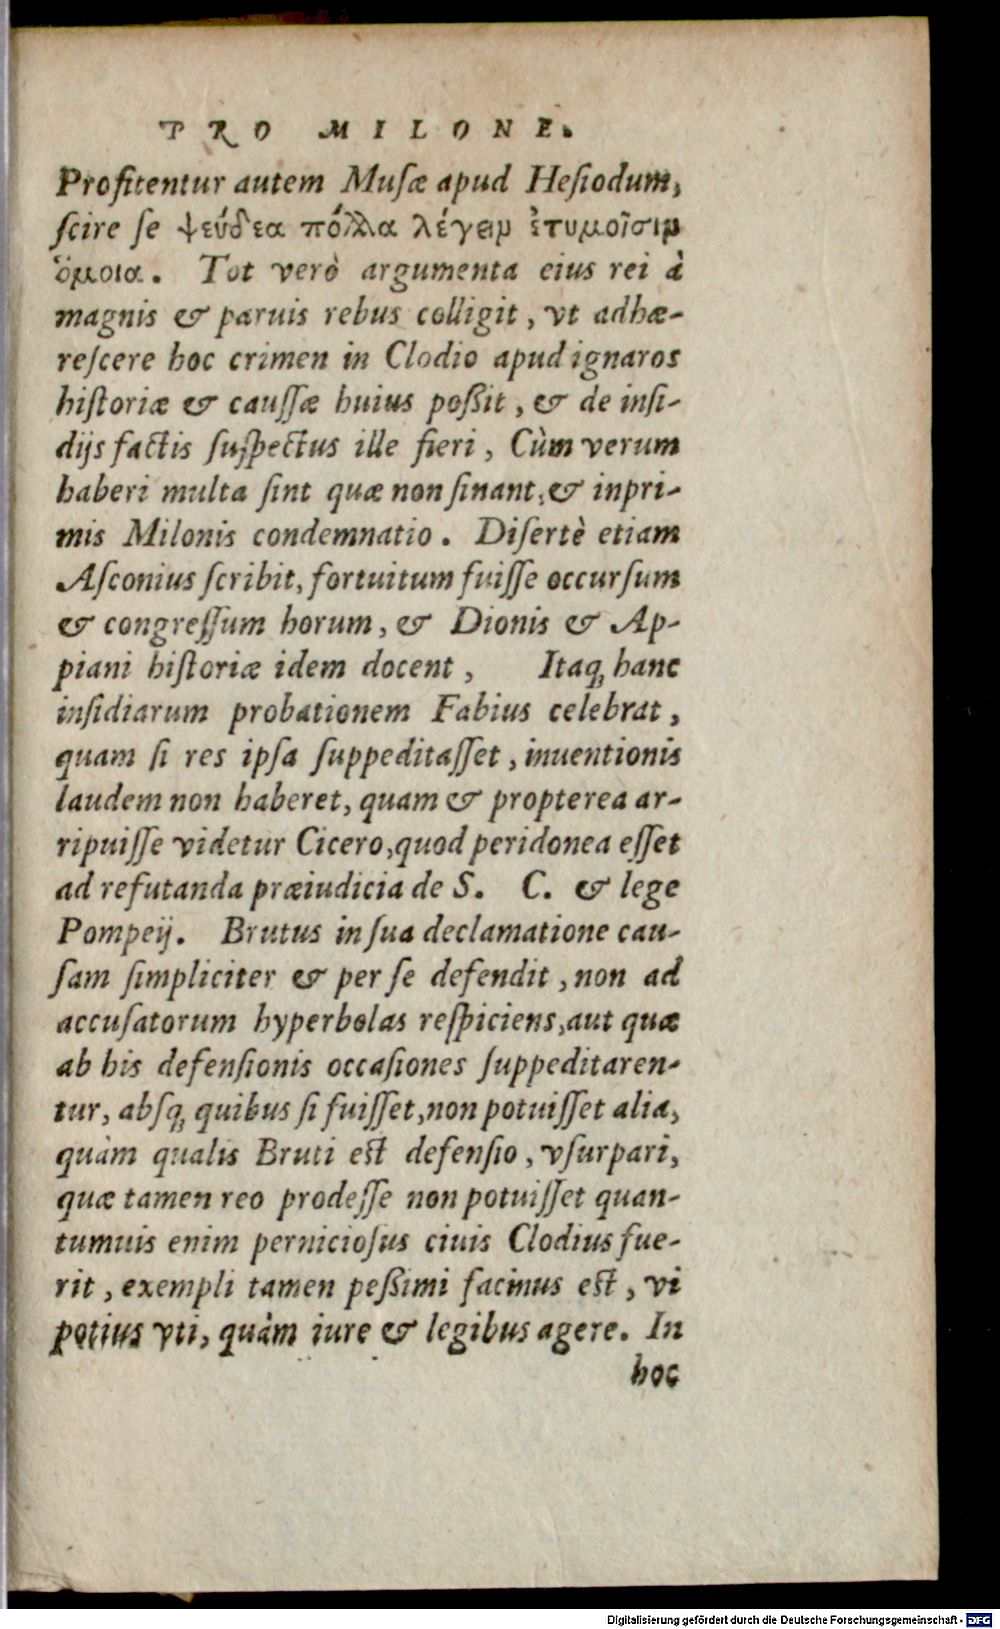 PRO MILONE.
Profitentur autem Musæ apud Hesiodum,
scire se ψεύδεα πόλλα λέγειν ἐτυμοῖσιν
ὅμοια. Tot verò argumenta eius rei à
magnis & paruis rebus colligit, vt adhæ-
rescere hoc crimen in Clodio apud ignaros
historiæ & caussæ huius poßit, & de insi-
dijs factis suspectus ille fieri, Cùm verum
haberi multa sint quæ non sinant, & inpri-
mis Milonis condemnatio. Disertè etiam
Asconius scribit, fortuitum fuisse occursum
& congressum horum, & Dionis & Ap-
piani historiæ idem docent, Itaq; hanc
insidiarum probationem Fabius celebrat,
quam si res ipsa suppeditasset, inuentionis
laudem non haberet, quam & propterea ar-
ripuisse videtur Cicero, quod peridonea esset
ad refutanda præiudicia de S. C. & lege
Pompeij. Brutus in sua declamatione cau-
sam simpliciter & per se defendit, non ad
accusatorum hyperbolas respiciens, aut quæ
ab his defensionis occasiones suppeditaren-
tur, absq; quibus si fuisset, non potuisset alia,
quàm qualis Bruti est defensio, vsurpari,
quæ tamen reo prodesse non potuisset quan-
tumuis enim perniciosus ciuis Clodius fue-
rit, exempli tamen peßimi facinus est, vi
potius vti, quàm iure & legibus agere. In
hoc
Digitalisierung gefördert durch die Deutsche Forschungsgemeinschaft - DFG